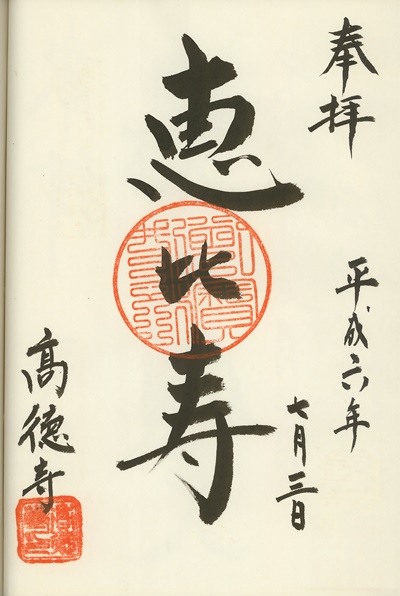 奉拝
平成六年
七月三日
恵比寿
高徳寺